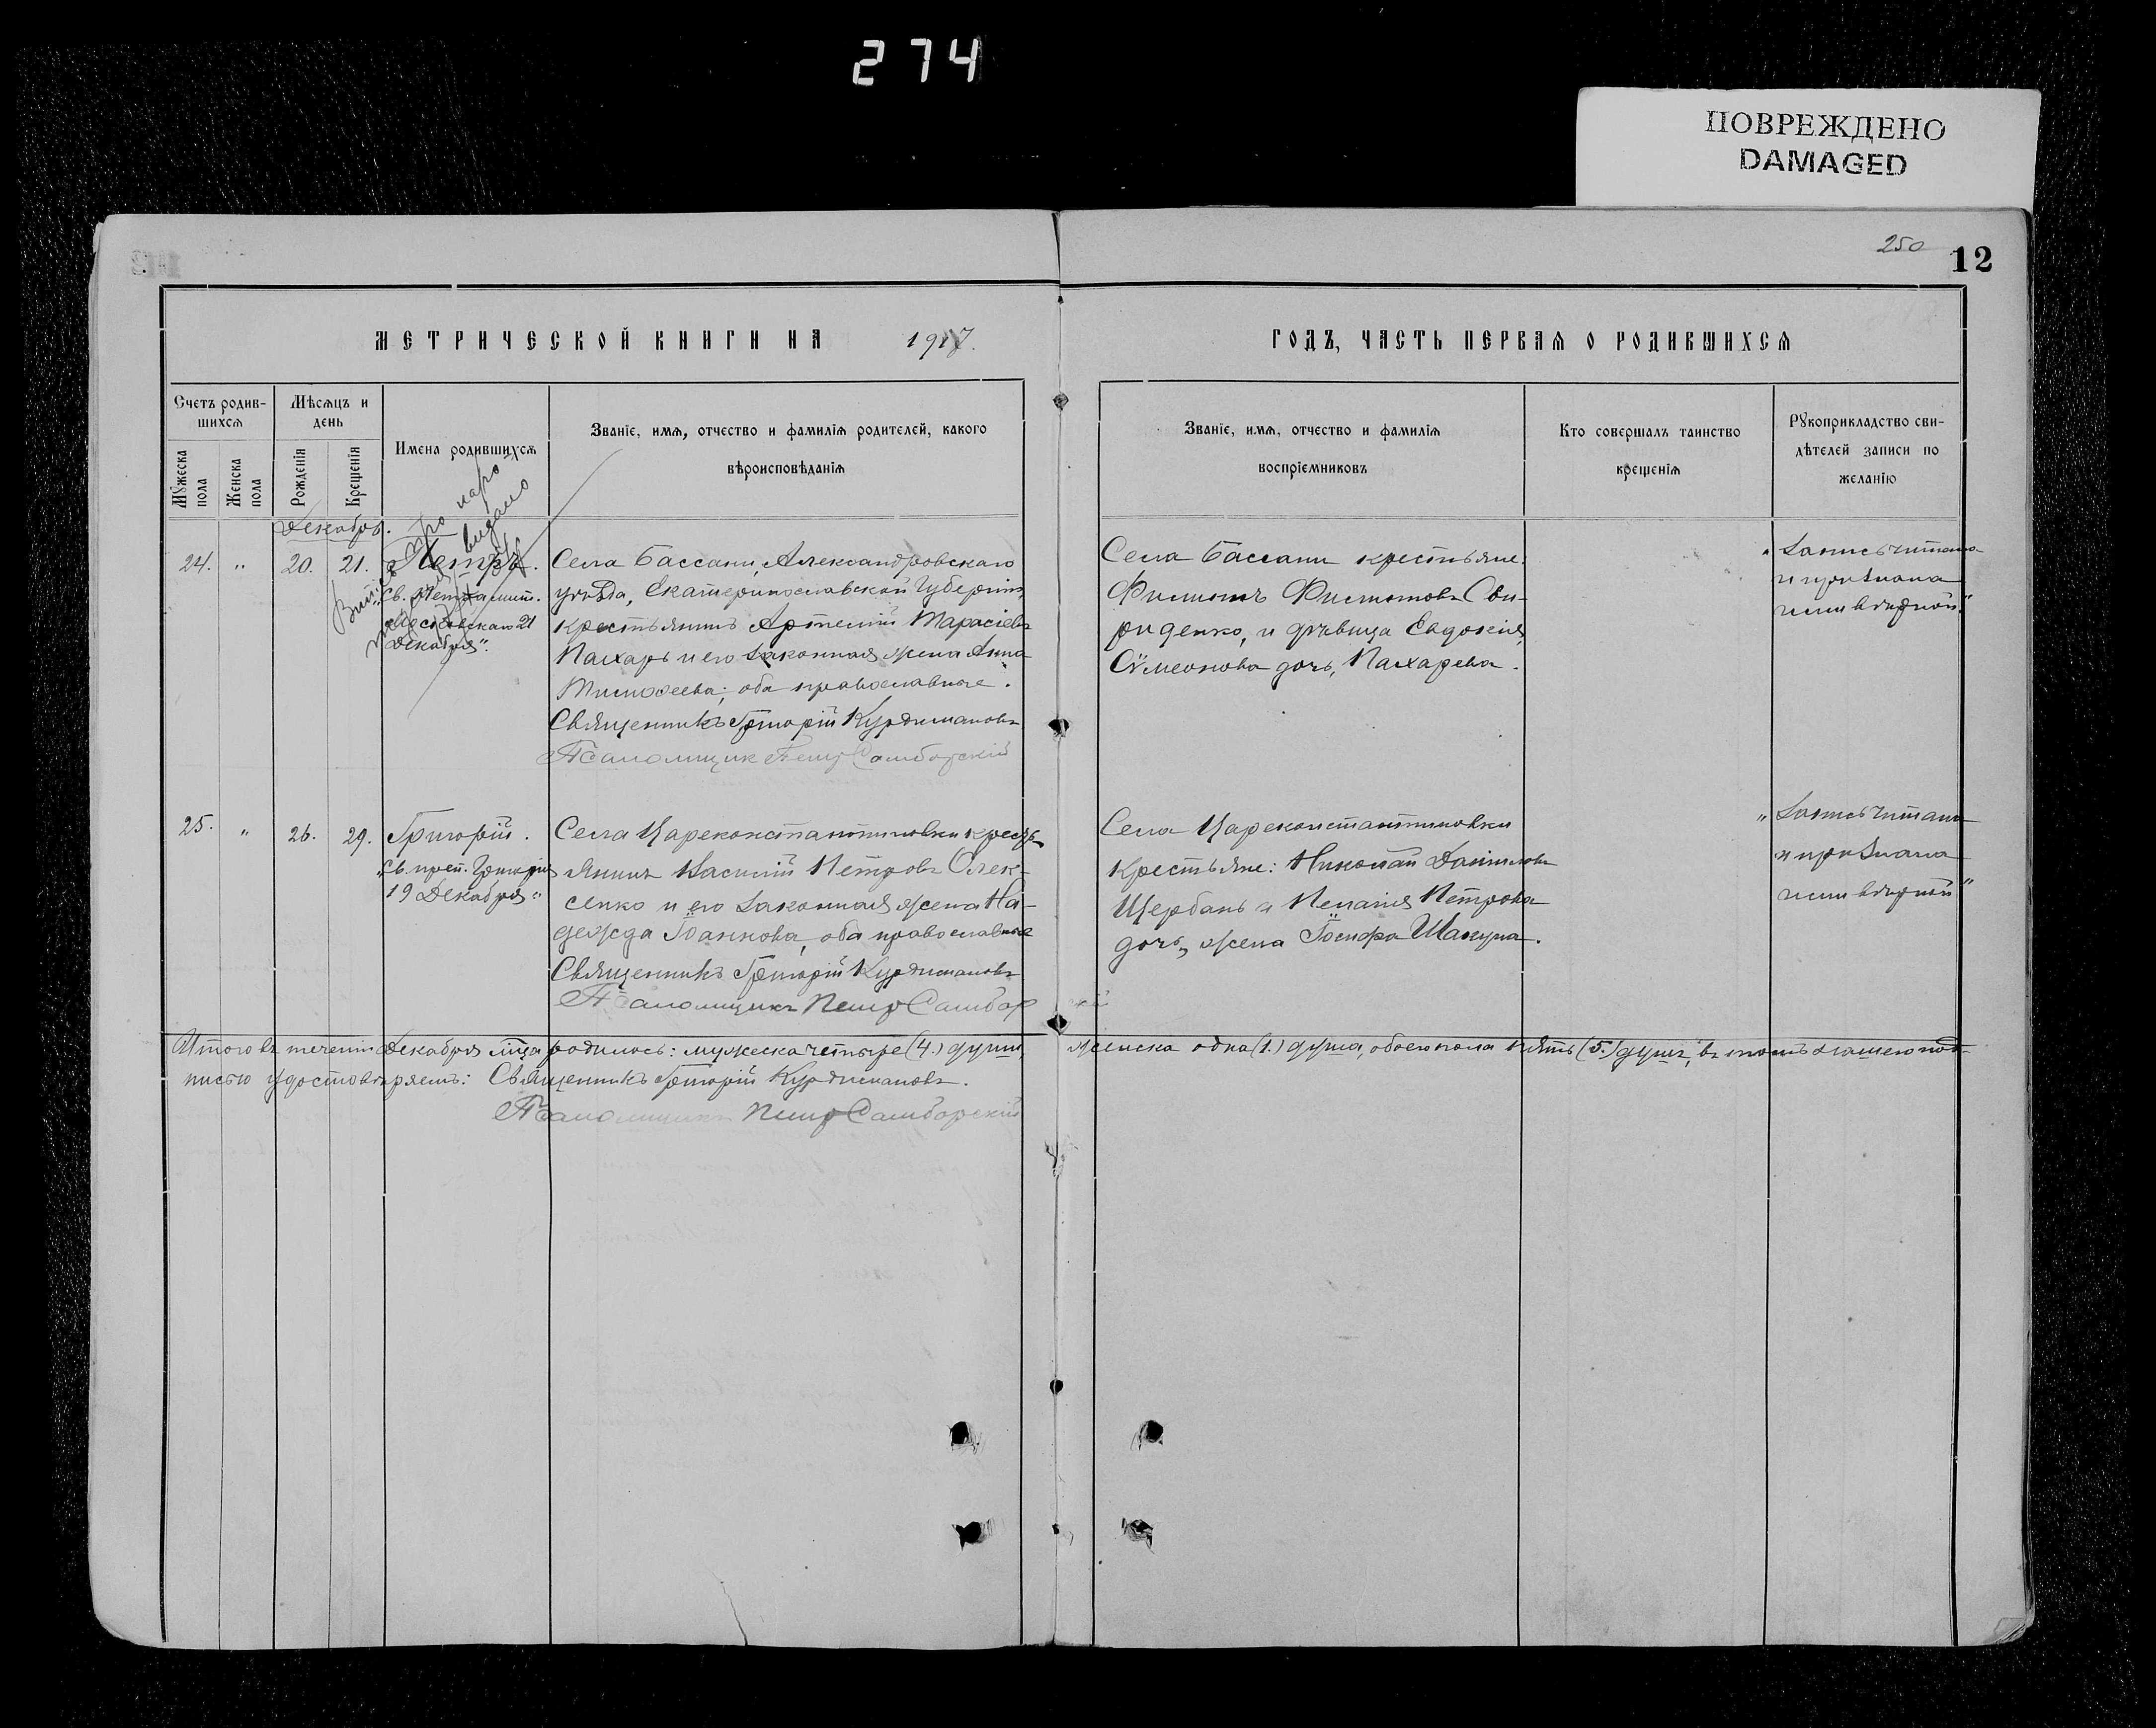 274
ПОВРЕЖДЕНО
DAMAGED
250
12
МЕТРИЧЕСКОЙ КНИГИ НА 1917.
ГОДЪ, ЧАСТЬ ПЕРВАЯ О РОДИВШИХСЯ
Счетъ родив-
шихся
Мѣсяцъ и
день
Мужеска
пола
Женска
пола
Рожденія
Крещенія
Имена родившихся
Званіе, имя, отчество и фамилія родителей, какого
вѣроисповѣданія
Званіе, имя, отчество и фамилія
воспріемниковъ
Кто совершалъ таинство
крещенія
Рукоприкладство сви-
дѣтелей записи по
желанію
Декабрь.
24. " 20. 21. Петръ.
"Св. Петра мит.
Московскаго 21
Декабря".
про наро
видано
Села Бассани, Александровскаго
уѣзда, Екатеринославской Губерніи,
крестьянинъ Артемій Тарасіевъ
Пахарь и его законная жена Анна
Тимофеева; оба православные.
Священникъ Григорій Курдимановъ
Псаломщик Петр Самборскій
Села Бассани крестьяне:
Филиппъ Филиповъ Сви-
риденко, и дѣвица Евдокія
Сѵмеонова дочь, Пахарева.
"Запись читана
и признана
ими вѣрной"
25. " 26. 29. Григорій.
"Св. преп. Григорія
19 Декабря"
Села Цареконстантиновки кресть-
янинъ Василій Петровъ Олек-
сенко и его законная жена На-
дежда Іоаннова, оба православные
Священникъ Григорій Курдимановъ
Псаломщикъ Петр Самборскій
Села Цареконстантиновки
крестьяне: Николай Даніиловъ
Щербань и Пелагія Петрова
дочь, жена Іосифа Шакуна.
"Запись читана
и признана
ими вѣрной"
Итого въ теченіи Декабря м-ца родилось: мужеска четыре (4.) души, женска одна (1.) душа, обоего пола пять (5.) душъ, въ томъ нашею под-
писью удостовѣряемъ: Священникъ Григорій Курдимановъ.
Псаломщикъ Петр Самборскій